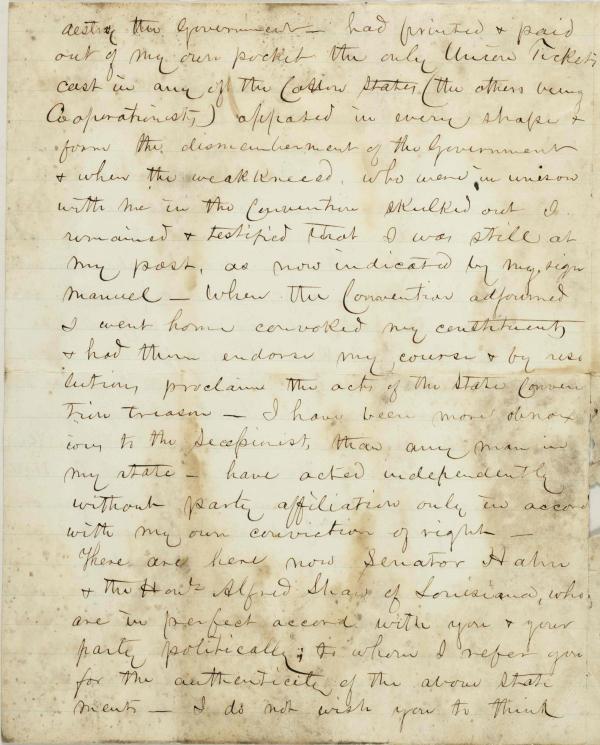 destroy the Government — had printed & paid
out of my own pocket the only Union Tickets
cast in any of the Cotton States (the others being
Cooperationists,) opposed in every shape &
form the dismemberment of the Government
& when the weakkneed, who were in unison
with me in the Convention skulked out I
remained & testified that I was still at
my post, as now indicated by my sign
manuel — When the Convention adjourned
I went home convoked my constituents
& had them endorse my course & by reso
lutions proclaim the acts of the State Conven
tion treason — I have been more obnox
ious to the Secessionists than any man in
my state — have acted independently
without party affiliation only in accord
with my own conviction of right —
There are here now Senator Hahn
& the Honl Alfred Shaw of Louisiana, who
are in perfect accord with you & your
party politically; to whom I refer you
for the authenticity of the above state
ments — I do not wish you to think